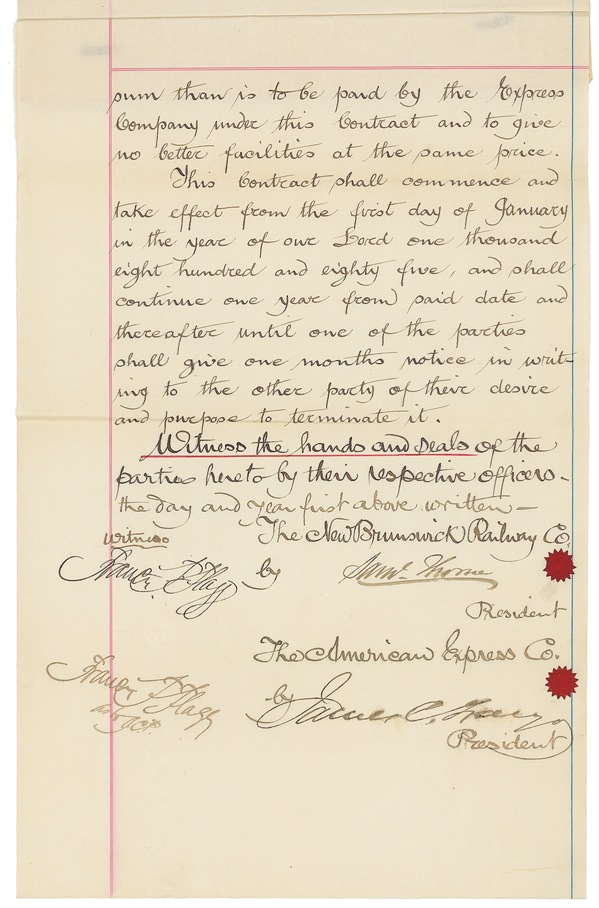 sum than is to be paid by the Express
Company under this Contract and to give
no better facilities at the same price.
This Contract shall commence and
take effect from the first day of January
in the year of our Lord one thousand
eight hundred and eighty five, and shall
continue one year from said date and
thereafter until one of the parties
shall give one months notice in writ-
ing to the other party of their desire
and purpose to terminate it.
Witness the hands and seals of the
parties hereto by their respective officers -
the day and year first above written -
Witness The New Brunswick Railway Co.
Francis F Flagg by Saml Thorne
President
The American Express Co.
Francis F Flagg
by James C. Fargo
President